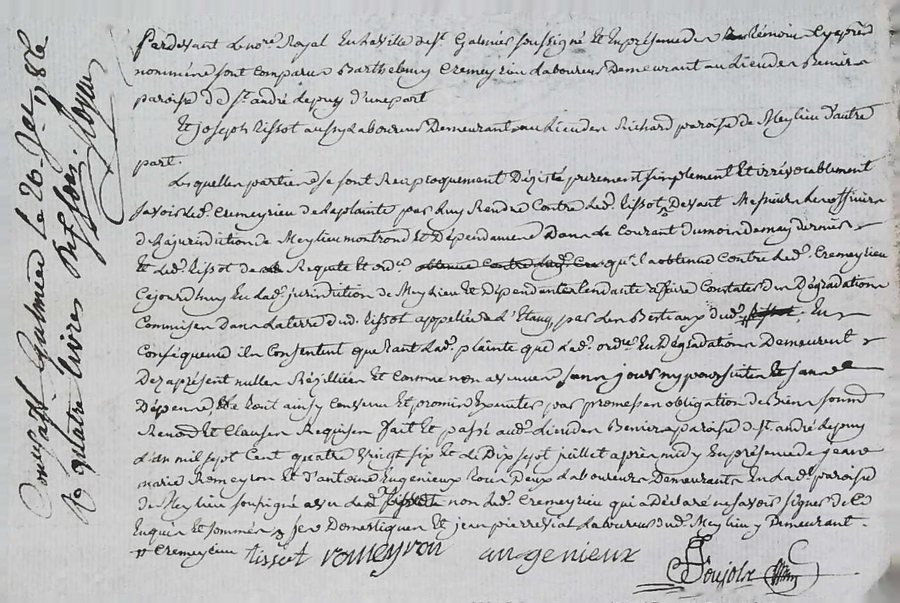 Pardevant le no.re Royal En la ville de St Galmier soussigné Et En présence des témoins Cy après
nommés sont Comparus Barthelemy Cremeyrieu Laboureur Demeurant au Lieu de
paroisse de St andré Le puy d'une part
Et joseph tissot aussy Laboureur Demeurant au Lieu de Richard paroisse de Meylieu d'autre
part.
Lesquelles parties se sont Reciproquement Désisté purement simplement Et irrévocablement
savoir led. Cremeyrieu de la plainte par luy Rendue Contre led. tissot Devant Messieurs les officiers
de la jurisdiction de Meylieu montrond Et Dépendances Dans le Courant du mois de may dernier
Et led. tissot de la Requete Et ord.ce obtenue Contre led. Cre qu'il a obtenue Contre led. Cremeyrieu
Cejourdhuy En lad. jurisdiction de Meylieu Et Dépendances tendante a faire Constater les Dégradations
Commises Dans la terre dud. tissot appellée de l'Etang, par les Bestiaux dud. tissot. En
Conséquence ils Consentent que tant lad. plainte que lad. ord.ce En Dégradations Demeurent
Dez aprésent nulles Rézilliées Et Comme non avenues sans
Dépens Ce tout ainsy Convenu Et promis par promesses obligation de Biens soumi
Renon Et Clauses Requises fait Et passé aud. Lieu de paroisse de St andré Le puy
L'an mil sept Cent quatre vingt six Et Le Dix sept juillet après midy En présence de jean
marie Romeyron Et d'antoine Eugenieux tous Deux Laboureurs Demeurants En lad. paroisse
de Meylieu soussignés avec led. tissot non led. Cremeyrieu qui a Déclaré ne savoir signer de Ce
Enquis Et sommé Domestiques Et jean pierre Laboureur dud. Meylieu y Demeurant
Cremeyrieu tissot romeyron angenieux
Controllé a St Galmier Le 26 1786
Rç quatre livres dix sols.